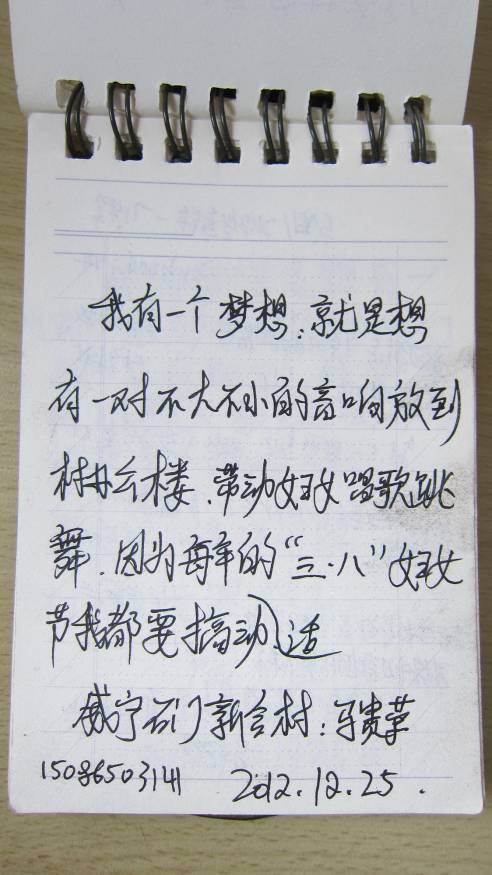 我有一个梦想.就是想
有一对不大不小的音响放到
村办公楼.带动妇女唱歌跳
舞.因为每年的“三·八”妇女
节我都要搞动
威宁石门新合村:马贵革
15086503141 2012.12.25.